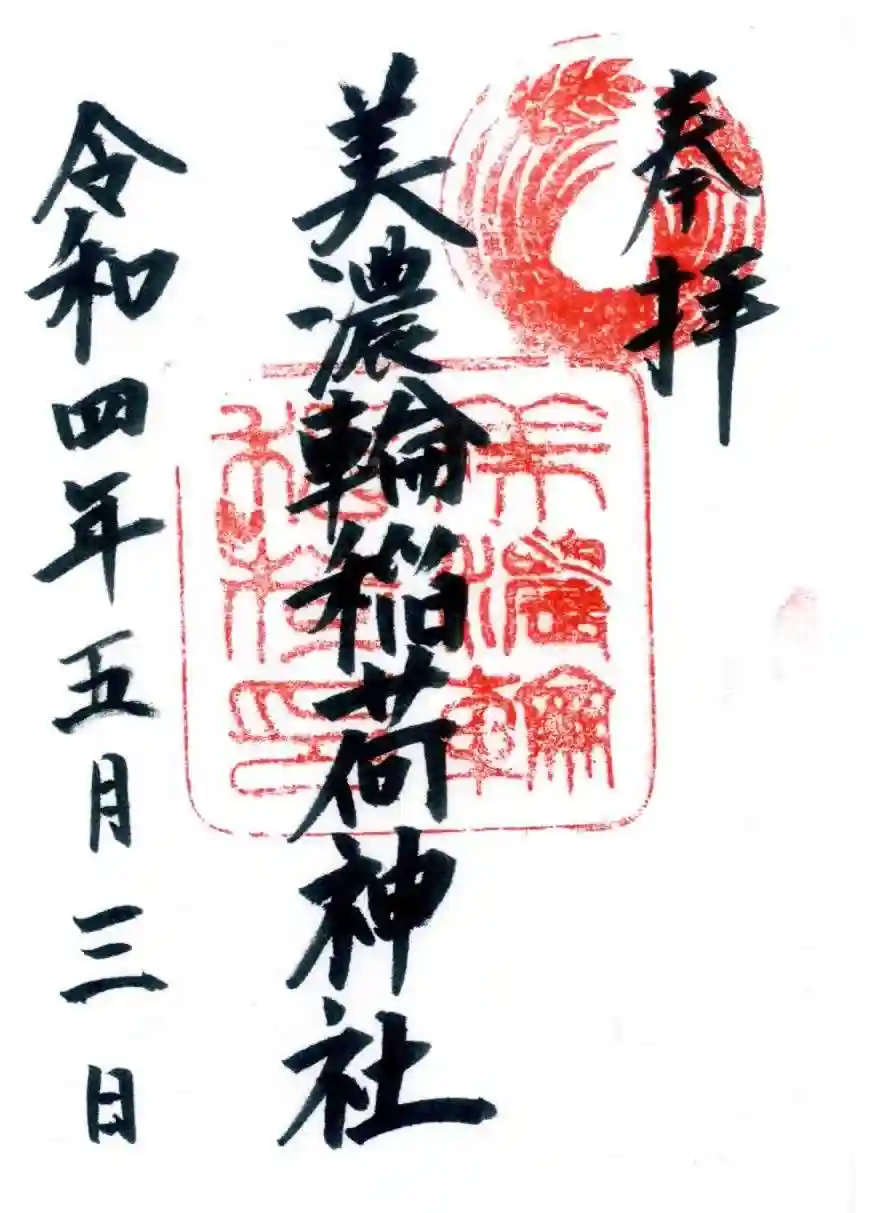 奉拝
美濃輪稲荷神社
美濃輪
稲荷神社印
令和四年五月三日